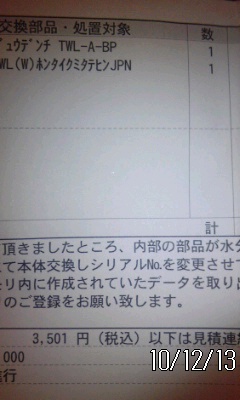 交換部品・処置対象 数
ュウデンチ TWL-A-BP 1
WL(W)ホンタイクミタテヒンJPN 1
計
頂きましたところ、内部の部品が水分
て本体交換しシリアルNo.を変更させて
モリ内に作成されていたデータを取り出
のご登録をお願い致します。
3,501 円（税込）以下は見積連
000
10/12/13